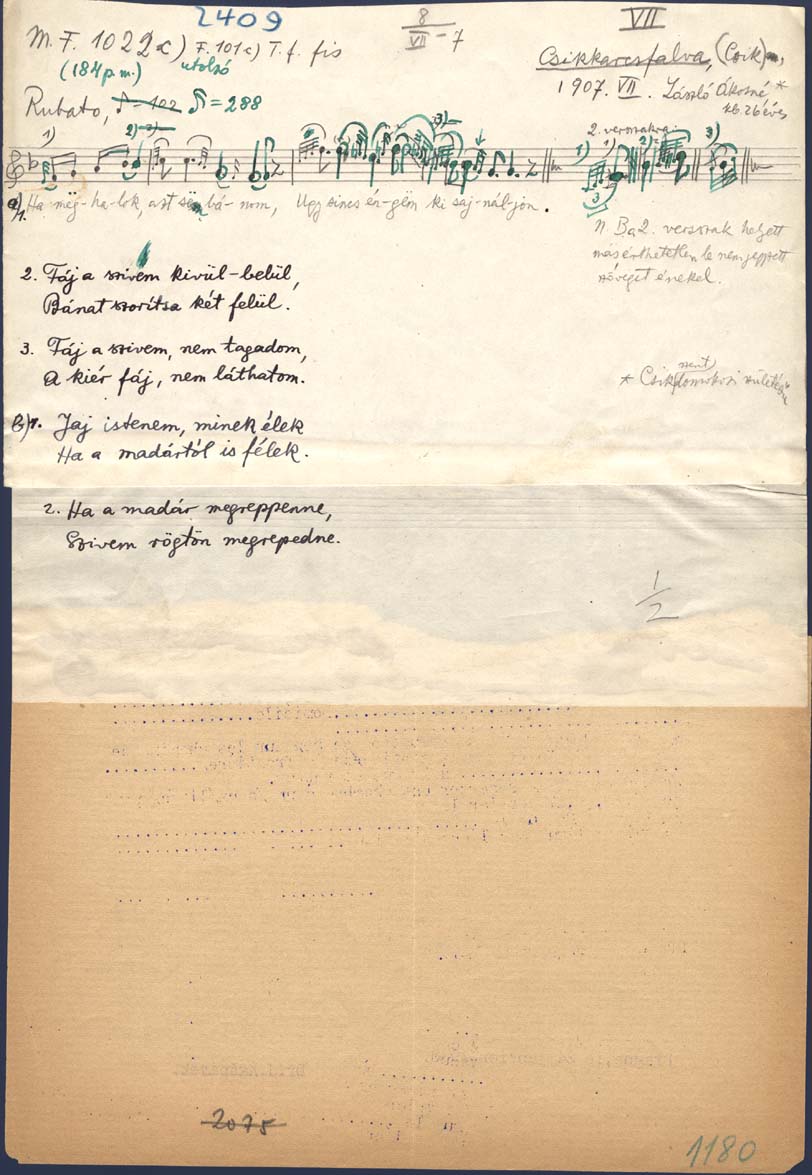 2409
8
VII - 7
VII
M. F. 1022 c) F. 101 c) T. f. fis
(184 p. m.) utolsó
Csikkarcsfalva, (Csik)m,
1907. VII. László Ákosné *
kb. 26 éves
Rubato, ♪ = 102 ♪ = 288
1) 2) 3) 3)
2. versszakra:
1) 1) 2) 3)
3)
a) 1. Ha meg-ha-lok, azt sem bá-nom, Ugy sincs én-gëm ki saj-nál-jon.
2. versszak helyett
más érthetetlen le nem jegyzett
szöveget énekel.
2. Fáj a szivem kivül-belül,
Bánat szorítsa két felül.
3. Fáj a szivem, nem tagadom,
A kiér fáj, nem láthatom.
* Csikszentdomokosi születésű
b) 1. Jaj istenem, minek élek
Ha a madártól is félek.
2. Ha a madár megreppenne,
Szivem rögtön megrepedne.
1/2
2075
1180